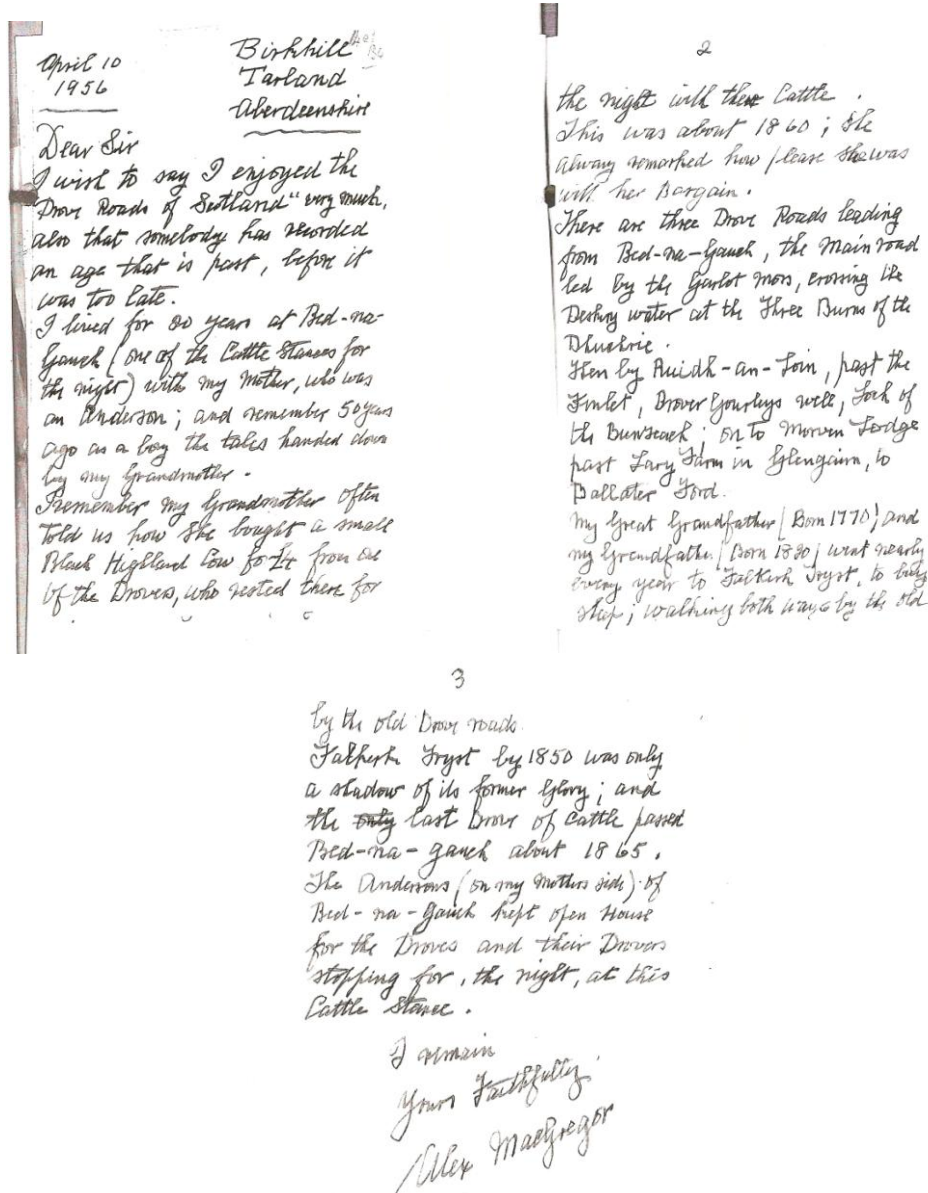 April 10
1956
Birkhill
Tarland
Aberdeenshire
Dear Sir
I wish to say I enjoyed the
Drove Roads of Scotland" very much,
also that somebody has recorded
an age that is past, before it
was too late.
I lived for 20 years at Bed-na-
Gauch (one of the Cattle Stances for
the night) with my Mother, who was
an Anderson; and remember 50 years
ago as a boy the tales handed down
by my Grandmother.
I remember my Grandmother often
told us how she bought a small
Black Highland Cow for £4 from one
of the Droves, who rested there for
2
the night with their Cattle.
This was about 1860; she
always remarked how please she was
with her Bargain.
There are three Drove Roads leading
from Bed-na-Gauch, the Main road
led by the Garlot Moss, crossing the
Deskry water at the Three Burns of the
Then by Ruidh-an-Loin, past the
Finlet, Drover Gourlays well, Loch of
the ; on to Morven Lodge
past Lary Farm in Glengairn, to
Ballater Ford.
My Great Grandfather (Born 1770) and
my Grandfather (Born 1830) went nearly
every year to Falkirk Tryst, to buy
sheep; walking both ways by the old
3
by the old Drove roads.
Falkirk Tryst by 1850 was only
a shadow of its former Glory; and
the only last Drove of Cattle passed
Bed-na-gauch about 1865.
The Andersons (on my Mothers side) of
Bed-na-Gauch kept open House
for the Droves and their Drovers
stopping for, the night, at this
Cattle Stance.
I remain
Yours Faithfully
Alex MacGregor